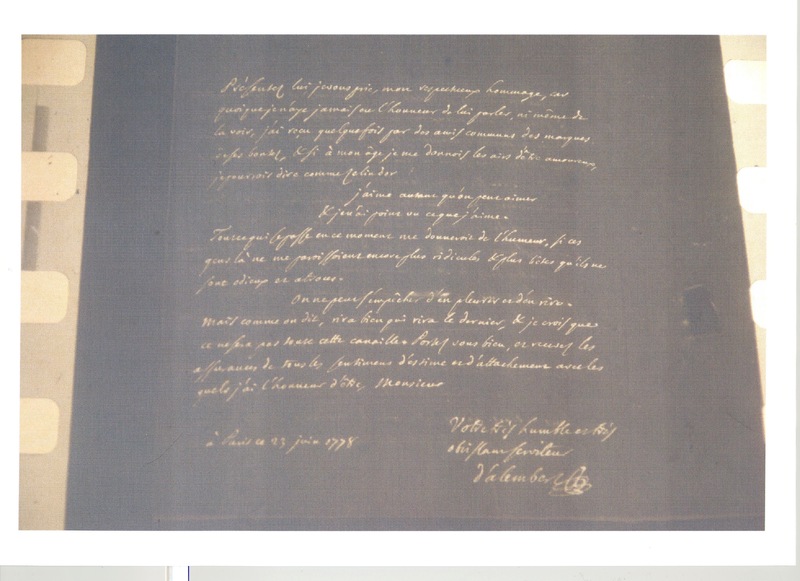 Présentez lui je vous prie, mon respectueux hommage, car
quoique je n'aye jamais eu l'honneur de lui parler, ni même de
la voir, j'ai reçu quelquefois par des amis communs des marques
de ses bontés, & si à mon âge je me donnois les airs d'être amoureux,
je pourrois dire comme Zelindor
j'aime autant qu'on peut aimer
& je n'ai point vu ce que j'aime.
Tout ce qui se passe en ce moment me donneroit de l'humeur, si ces
gens là ne me paroissoient encore plus ridicules & plus bêtes qu'ils ne
sont odieux et atroces.
On ne peut s'empêcher d'en pleurer et d'en rire.
Mais comme on dit, rira bien qui rira le dernier, & je crois que
ce ne sera pas toute cette canaille. Portez vous bien, et recevez les
assurances de tous les sentimens d'estime et d'attachement avec les
quels j'ai l'honneur d'être, Monsieur
à Paris ce 23 juin 1778
Votre très humble et très
obéissant serviteur
d'alembert